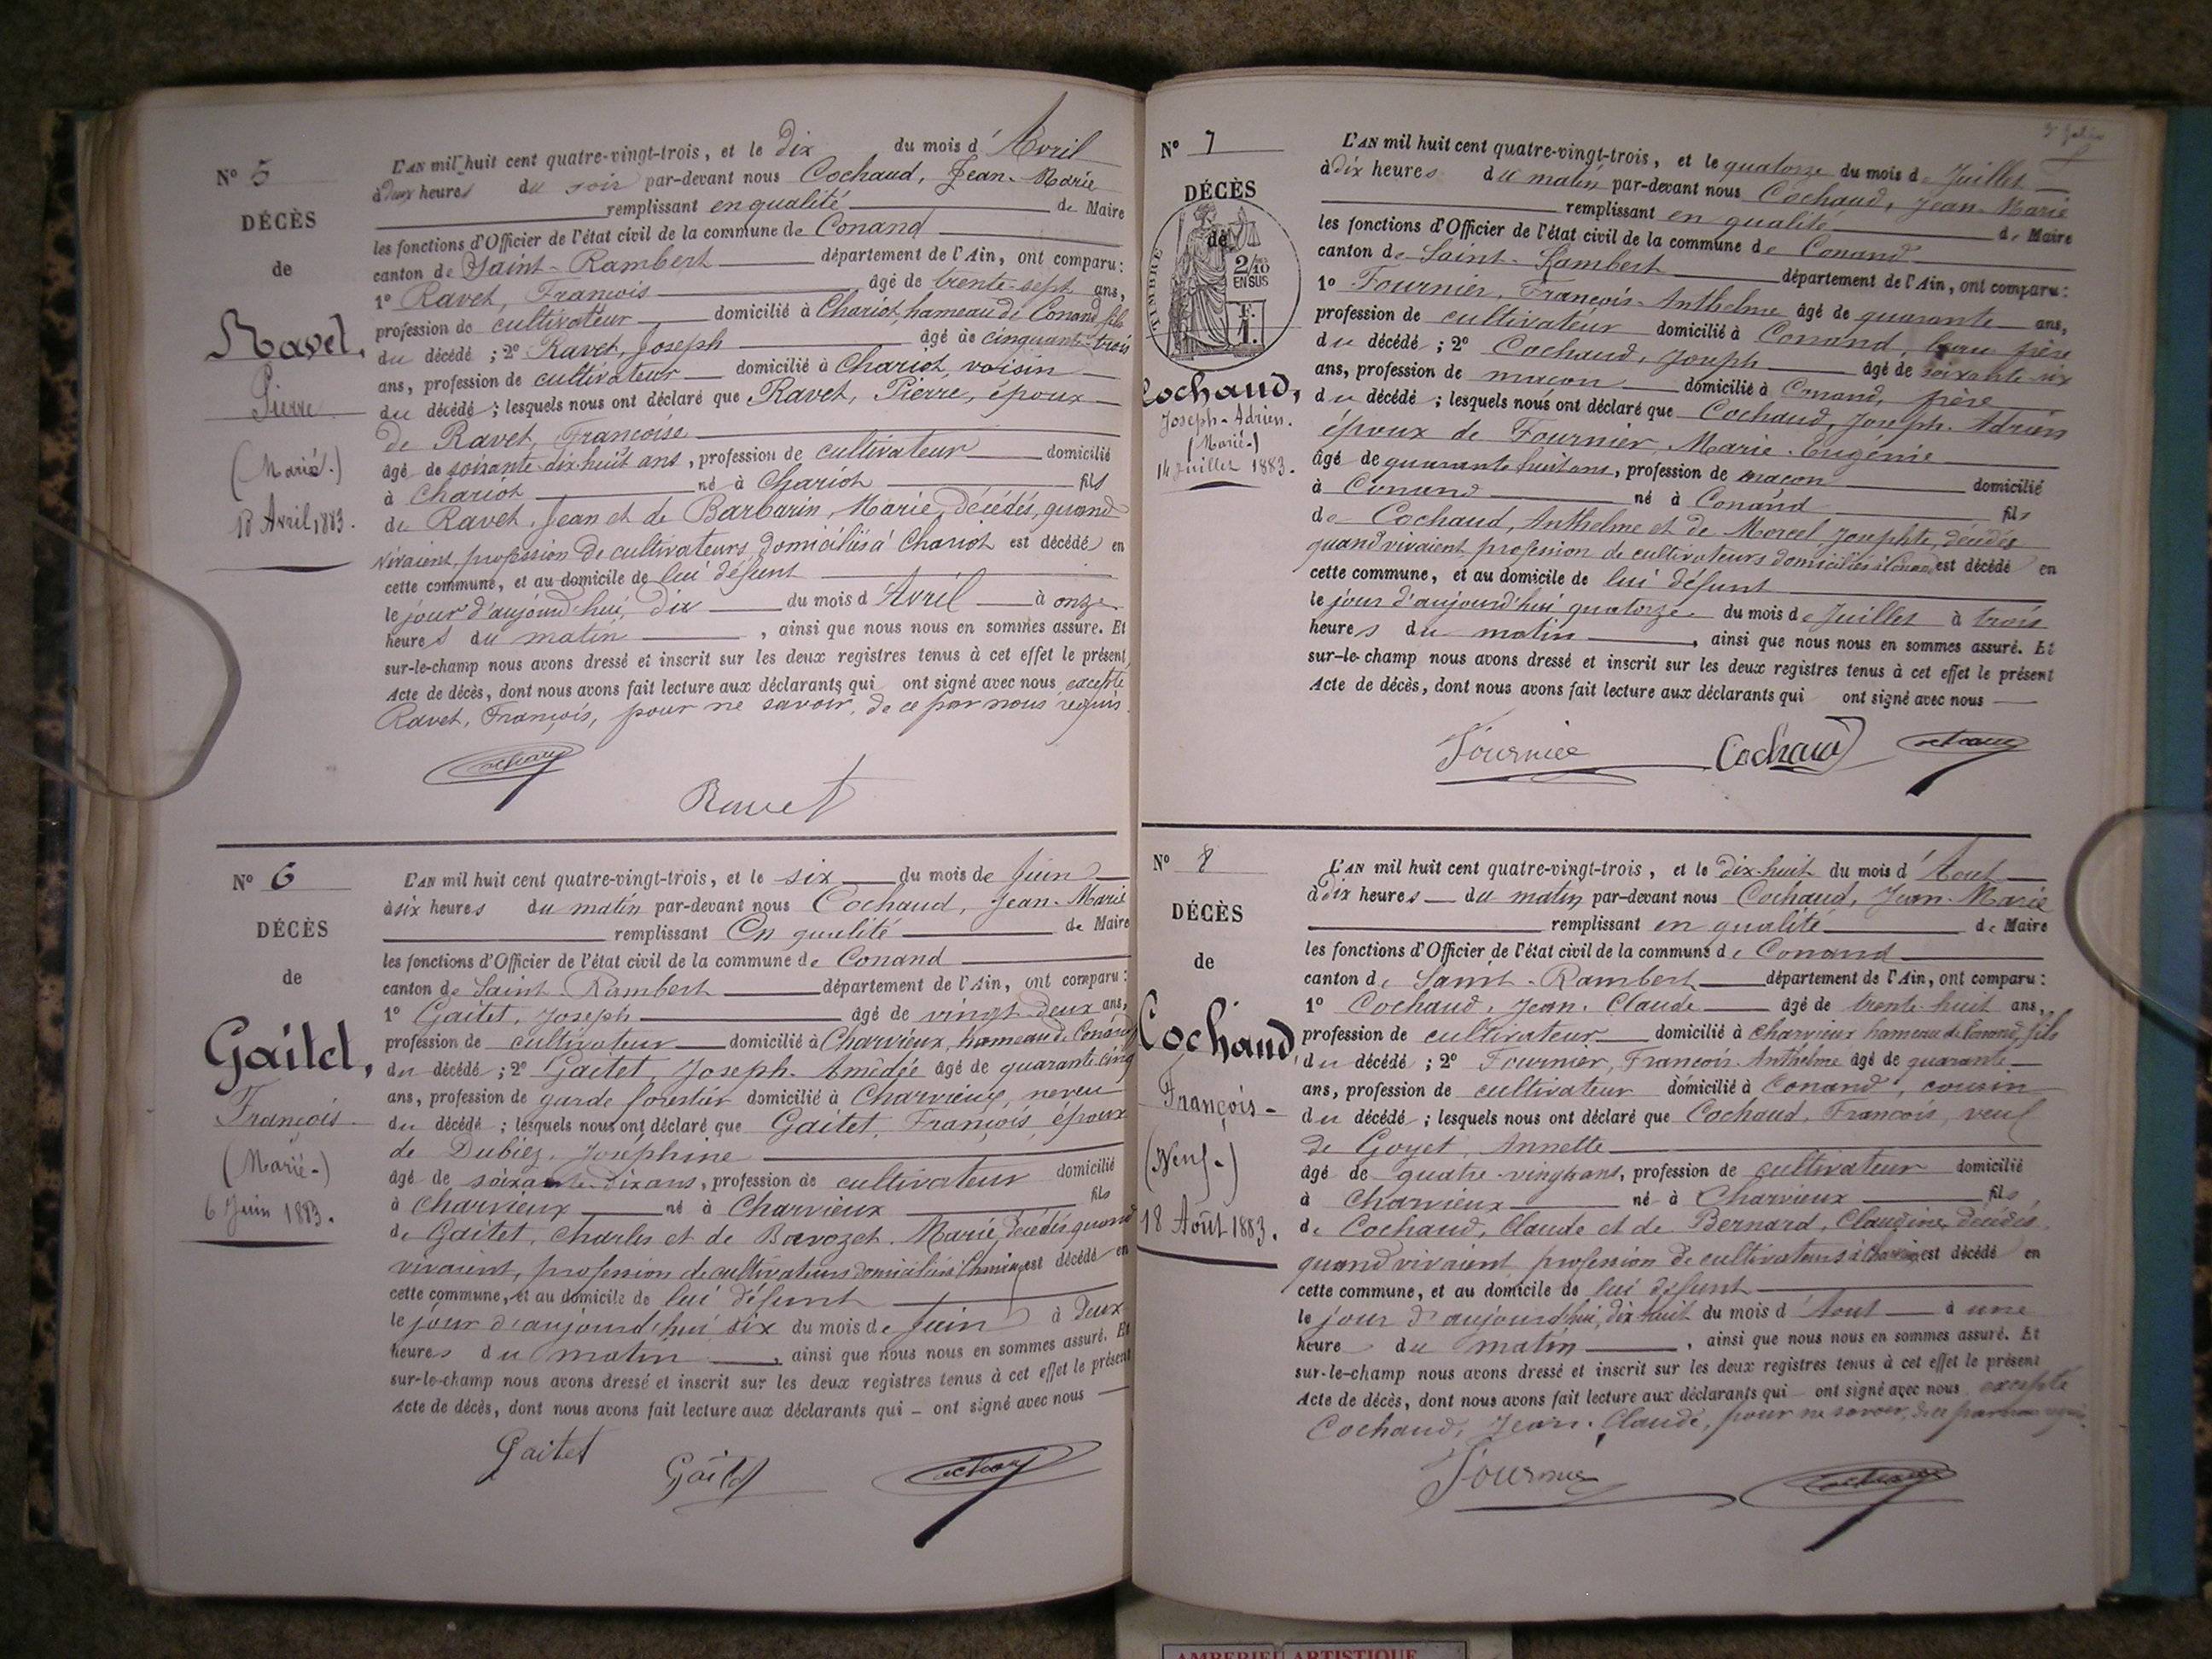 N° 5
DÉCÈS
de
Ravet,
Pierre
(Marié.)
10 Avril 1883.
L'AN mil huit cent quatre-vingt-trois, et le Dix du mois d'Avril
à deux heures du soir par-devant nous Cochaud, Jean-Marie
remplissant en qualité de Maire
les fonctions d'Officier de l'état civil de la commune de Conand
canton de Saint-Rambert département de l'Ain, ont comparu:
1° Ravet, François âgé de trente-sept ans,
profession de cultivateur domicilié à Chariot, hameau de Conand, fils
du décédé ; 2° Ravet, Joseph âgé de cinquante-trois
ans, profession de cultivateur domicilié à Chariot, voisin
du décédé ; lesquels nous ont déclaré que Ravet, Pierre, époux
de Ravet, Françoise
âgé de soixante-dix huit ans, profession de cultivateur domicilié
à Chariot né à Chariot fils
de Ravet, Jean et de Barbarin, Marie, décédés, quand
vivaient, profession de cultivateurs domiciliés à Chariot est décédé en
cette commune, et au domicile de lui défunt
le jour d'aujourd'hui, dix du mois d'Avril à onze
heures du matin, ainsi que nous nous en sommes assuré. Et
sur-le-champ nous avons dressé et inscrit sur les deux registres tenus à cet effet le présent
Acte de décès, dont nous avons fait lecture aux déclarants qui ont signé avec nous, excepté
Ravet, François, pour ne savoir, de ce par nous requis.
Cochaud
Ravet
N° 6
DÉCÈS
de
Gaitet,
François
(Marié-)
6 Juin 1883.
L'AN mil huit cent quatre-vingt-trois, et le six du mois de Juin
à six heures du matin par-devant nous Cochaud, Jean-Marie
remplissant En qualité de Maire
les fonctions d'Officier de l'état civil de la commune de Conand
canton de Saint-Rambert département de l'Ain, ont comparu:
1° Gaitet, Joseph âgé de vingt-deux ans,
profession de cultivateur domicilié à Charvieux, hameau de Conand
du décédé ; 2° Gaitet, Joseph-Amédée âgé de quarante-cinq
ans, profession de garde forestier domicilié à Charvieux, neveu
du décédé ; lesquels nous ont déclaré que Gaitet, François, époux
de Dubiez, Joséphine
âgé de soixante-dix ans, profession de cultivateur domicilié
à Charvieux né à Charvieux fils
de Gaitet, Charles et de Bavozet, Marie, décédés, quand
vivaient, profession de cultivateurs domiciliés à Charvieux est décédé en
cette commune, et au domicile de lui défunt
le jour d'aujourd'hui six du mois de Juin à deux
heures du matin, ainsi que nous nous en sommes assuré. Et
sur-le-champ nous avons dressé et inscrit sur les deux registres tenus à cet effet le présent
Acte de décès, dont nous avons fait lecture aux déclarants qui ont signé avec nous
Gaitet
Gaitet
Cochaud
N° 7
DÉCÈS
de
TIMBRE
2/10
EN SUS
F.
1.
Cochaud,
Joseph-Adrien.
(Marié-)
14 Juillet 1883.
L'AN mil huit cent quatre-vingt-trois, et le quatorze du mois de Juillet
à dix heures du matin par-devant nous Cochaud, Jean-Marie
remplissant en qualité de Maire
les fonctions d'Officier de l'état civil de la commune de Conand
canton de Saint-Rambert département de l'Ain, ont comparu:
1° Fournier, François-Anthelme âgé de quarante ans,
profession de cultivateur domicilié à Conand, beau frère
du décédé ; 2° Cochaud, Joseph âgé de soixante-six
ans, profession de maçon domicilié à Conand, frère
du décédé ; lesquels nous ont déclaré que Cochaud, Joseph-Adrien
époux de Fournier, Marie-Eugénie
âgé de quarante huit ans, profession de maçon domicilié
à Conand né à Conand fils
de Cochaud, Anthelme et de Morcel, Josephte, décédés
quand vivaient profession de cultivateurs domiciliés à Conand est décédé en
cette commune, et au domicile de lui défunt
le jour d'aujourd'hui quatorze du mois de Juillet à trois
heures du matin, ainsi que nous nous en sommes assuré. Et
sur-le-champ nous avons dressé et inscrit sur les deux registres tenus à cet effet le présent
Acte de décès, dont nous avons fait lecture aux déclarants qui ont signé avec nous
Fournier Cochaud Cochaud
N° 8
DÉCÈS
de
Cochaud,
François-
(Veuf-)
18 Août 1883.
L'AN mil huit cent quatre-vingt-trois, et le dix-huit du mois d'Aout
à dix heures du matin par-devant nous Cochaud, Jean-Marie
remplissant en qualité de Maire
les fonctions d'Officier de l'état civil de la commune de Conand
canton de Saint-Rambert département de l'Ain, ont comparu:
1° Cochaud, Jean-Claude âgé de trente-huit ans,
profession de cultivateur domicilié à Charvieux hameau de Conand, fils
du décédé ; 2° Fournier, François-Anthelme âgé de quarante
ans, profession de cultivateur domicilié à Conand, cousin
du décédé ; lesquels nous ont déclaré que Cochaud, François, veuf
de Goyet, Annette
âgé de quatre-vingts ans, profession de cultivateur domicilié
à Charvieux né à Charvieux fils
de Cochaud, Claude et de Bernard, Claudine, décédés
quand vivaient profession de cultivateurs à Charvieux est décédé en
cette commune, et au domicile de lui défunt
le jour d'aujourd'hui, dix huit du mois d'Aout à une
heure du matin, ainsi que nous nous en sommes assuré. Et
sur-le-champ nous avons dressé et inscrit sur les deux registres tenus à cet effet le présent
Acte de décès, dont nous avons fait lecture aux déclarants qui ont signé avec nous excepté
Cochaud, Jean-Claude, pour ne savoir, de ce par nous requis.
Fournier
Cochaud
AMBERIEU ARTISTIQUE